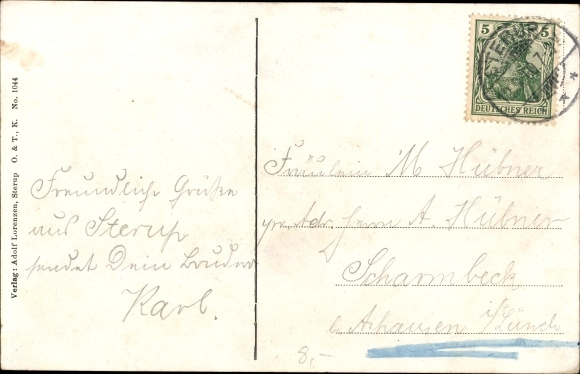 Verlag: Adolf Lorenzen, Sterup O. & T., K. No. 1044
Freundliche Grüße
aus Sterup
sendet Dein Bruder
Karl.
5 5
DEUTSCHES REICH
STERUP
Fräulein M Hübner
pr Adr. Herrn A Hübner
Scharmbeck
b
8,-